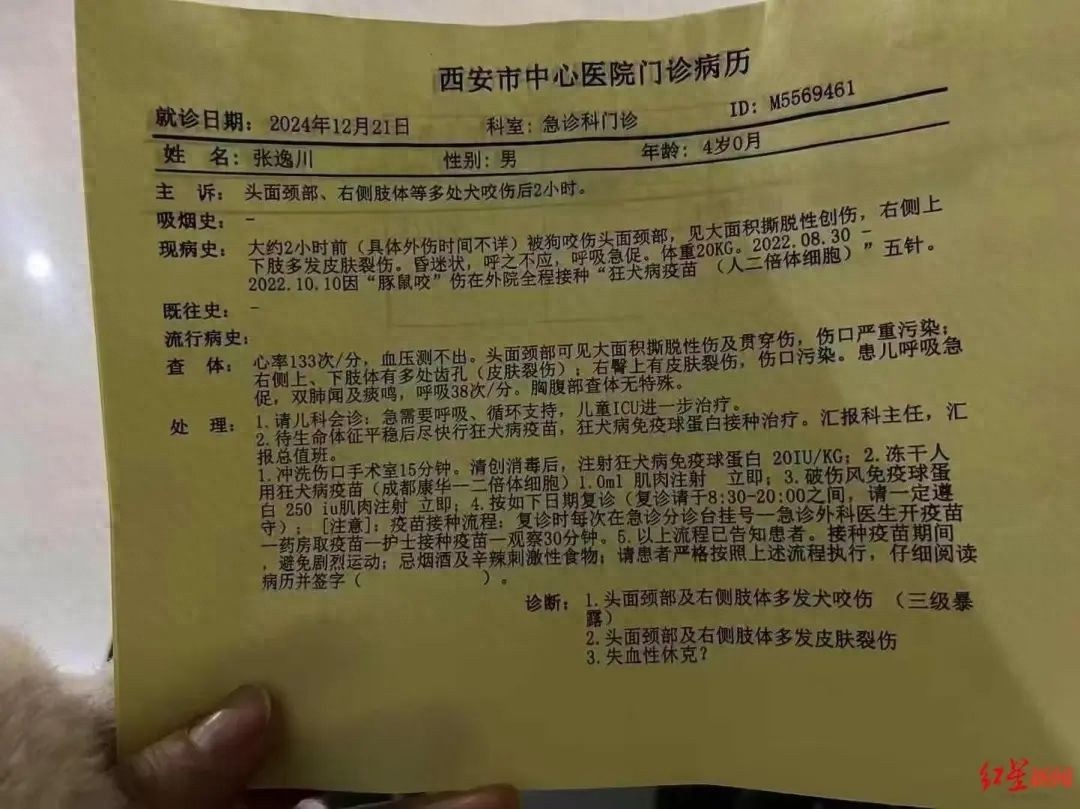 西安市中心医院门诊病历
就诊日期: 2024年12月21日 科室: 急诊科门诊 ID: M5569461
姓 名: 张逸川 性别: 男 年龄: 4岁0月
主 诉: 头面颈部、右侧肢体等多处犬咬伤后2小时。
吸烟史: -
现病史: 大约2小时前（具体外伤时间不详）被狗咬伤头面颈部，见大面积撕脱性创伤，右侧上
下肢多发皮肤裂伤。昏迷状，呼之不应，呼吸急促。体重20KG。2022.08.30 -
2022.10.10因“豚鼠咬”伤在外院全程接种“狂犬病疫苗 （人二倍体细胞）” 五针。
既往史: -
流行病史:
查 体: 心率133次/分，血压测不出。头面颈部可见大面积撕脱性伤及贯穿伤，伤口严重污染;
右侧上、下肢体有多处齿孔（皮肤裂伤）; 右臀上有皮肤裂伤，伤口污染。患儿呼吸急
促，双肺闻及痰鸣，呼吸38次/分。胸腹部查体无特殊。
处 理: 1.请儿科会诊: 急需要呼吸、循环支持，儿童ICU进一步治疗。
2.待生命体征平稳后尽快行狂犬病疫苗，狂犬病免疫球蛋白接种治疗。汇报科主任，汇
报总值班。
1.冲洗伤口手术室15分钟。清创消毒后，注射狂犬病免疫球蛋白 20IU/KG; 2.冻干人
用狂犬病疫苗（成都康华—二倍体细胞）1.0ml 肌肉注射 立即; 3.破伤风免疫球蛋
白 250 iu肌肉注射 立即; 4.按如下日期复诊（复诊请于8:30-20:00之间，请一定遵
守）; [注意]: 疫苗接种流程: 复诊时每次在急诊分诊台挂号—急诊外科医生开疫苗
—药房取疫苗—护士接种疫苗—观察30分钟。5.以上流程已告知患者。接种疫苗期间
，避免剧烈运动; 忌烟酒及辛辣刺激性食物; 请患者严格按照上述流程执行，仔细阅读
病历并签字（ ）。
诊断: 1.头面颈部及右侧肢体多发犬咬伤 （三级暴
露）
2.头面颈部及右侧肢体多发皮肤裂伤
3.失血性休克?
红星